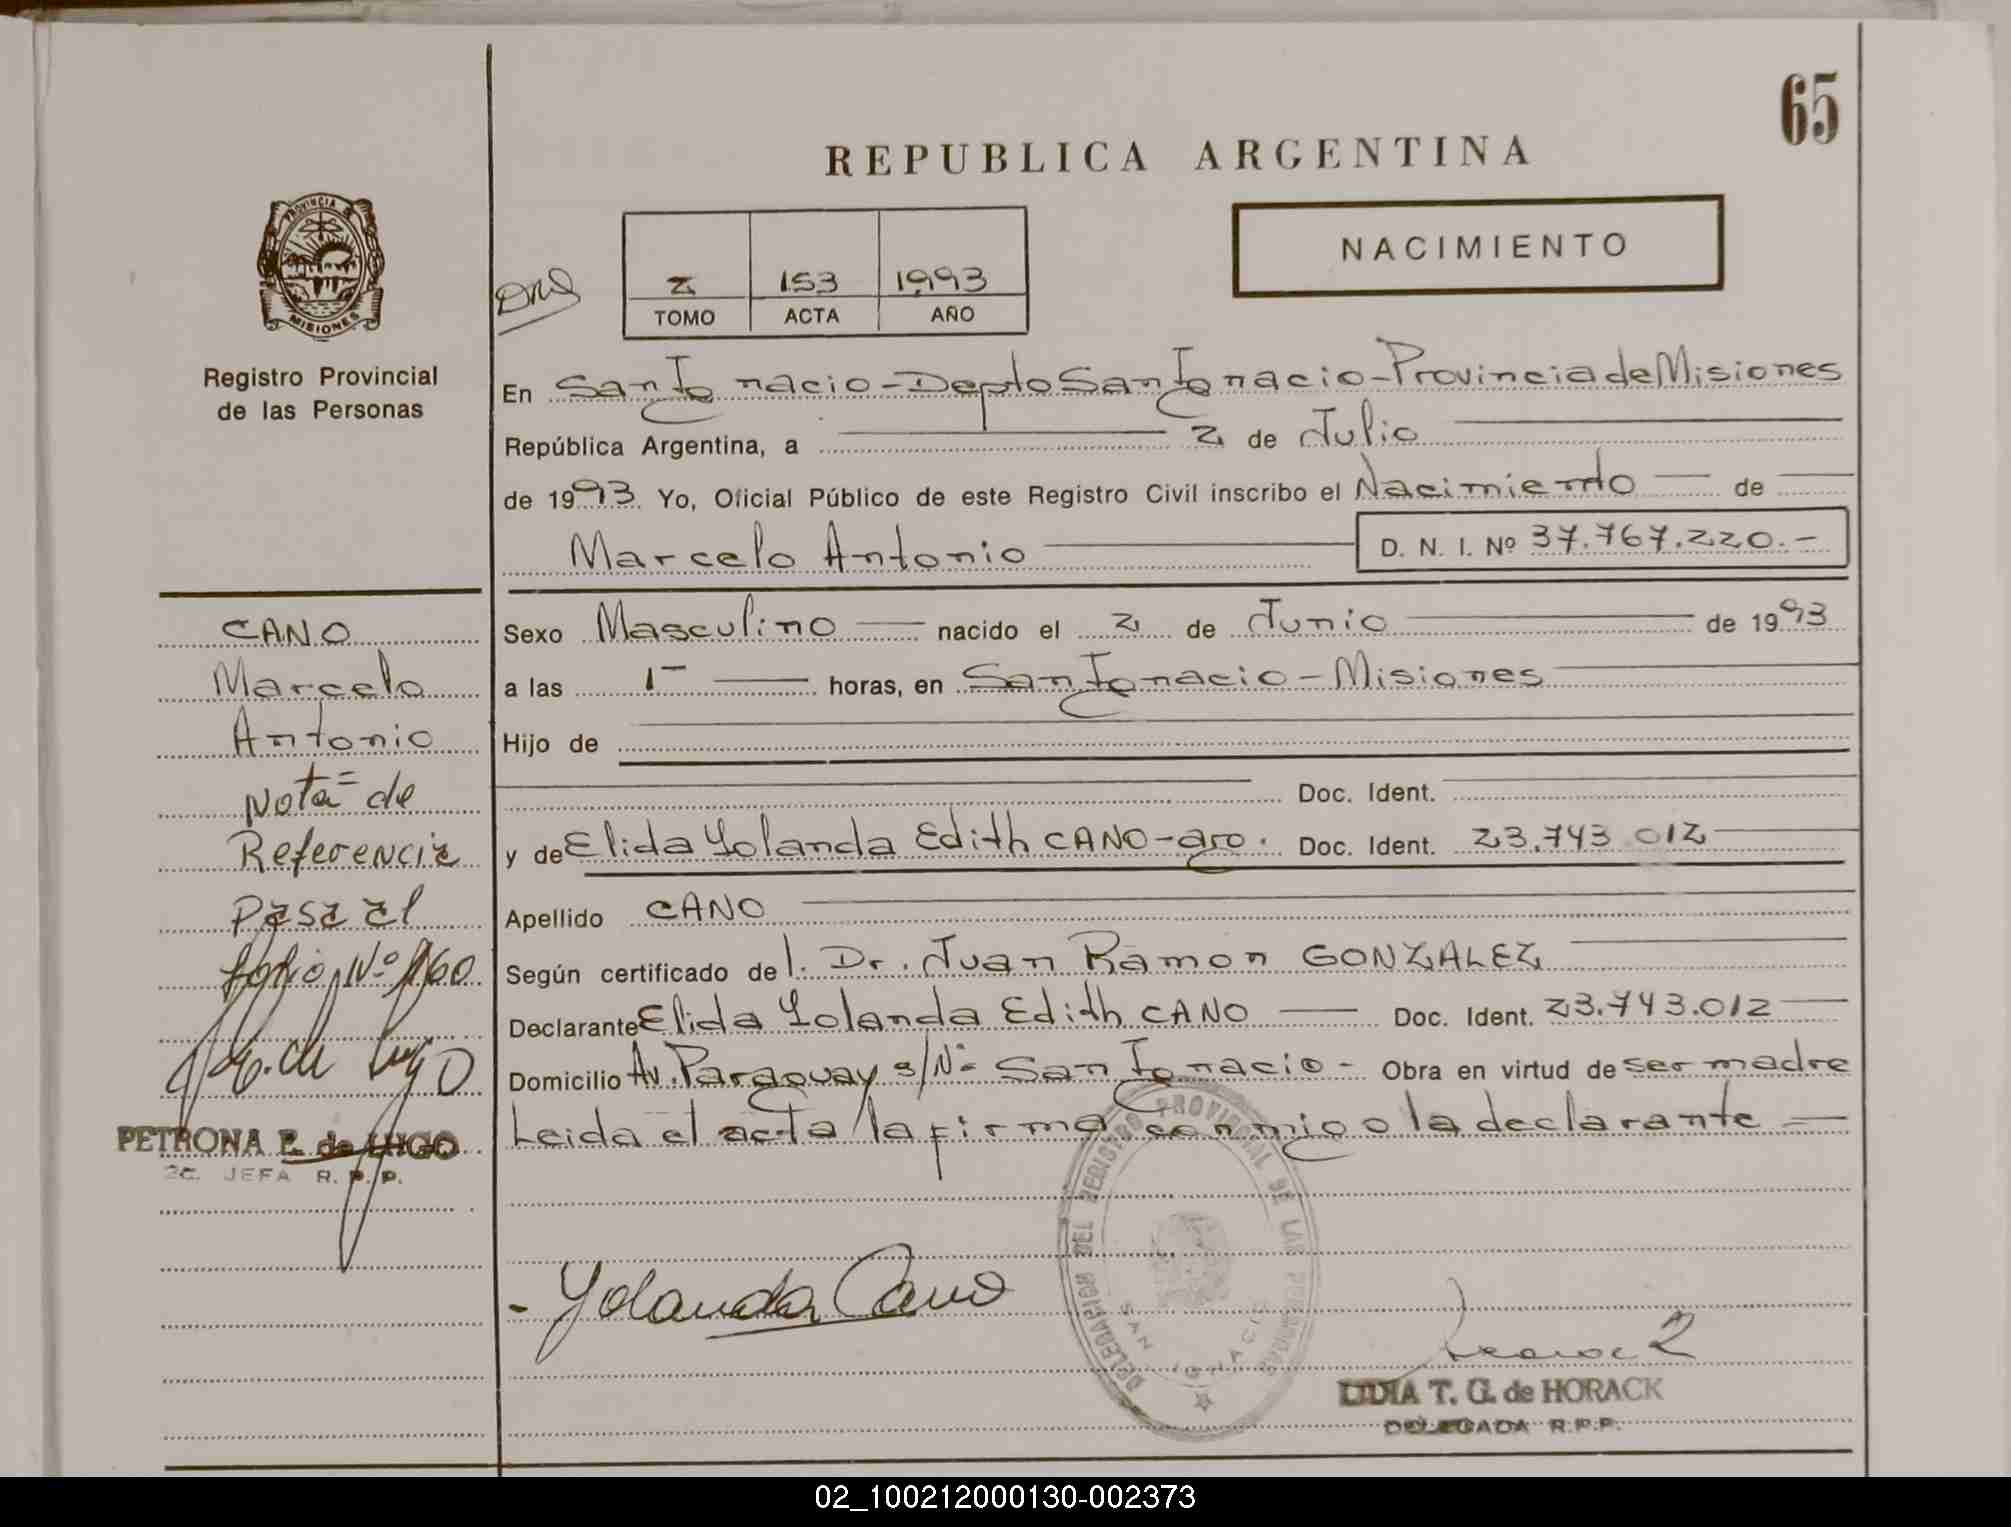 65
REPUBLICA ARGENTINA
PROVINCIA DE
MISIONES
Registro Provincial
de las Personas
2 153 1993
TOMO ACTA AÑO
NACIMIENTO
En San Ignacio - Depto San Ignacio - Provincia de Misiones
República Argentina, a 2 de Julio
de 1993. Yo, Oficial Público de este Registro Civil inscribo el Nacimiento de
Marcelo Antonio D. N. I. Nº 37.767.220.-
Sexo Masculino nacido el 2 de Junio de 1993
a las 1 horas, en San Ignacio - Misiones
Hijo de
Doc. Ident.
y de Elida Yolanda Edith CANO - arg. Doc. Ident. 23.743.012
Apellido CANO
Según certificado del. Dr. Juan Ramon GONZALEZ
Declarante Elida Yolanda Edith CANO Doc. Ident. 23.743.012
Domicilio Av. Paraguay s/Nº San Ignacio - Obra en virtud de ser madre
Leida el acta la firma conmigo la declarante
CANO
Marcelo
Antonio
Nota = de
Referencia
Pasa al
folio Nº 160
PETRONA E. de LUGO
2a. JEFA R.P.P.
Yolanda Cano
DELEGACION DEL REGISTRO PROVINCIAL DE LAS PERSONAS
SAN IGNACIO
LIDIA T. G. de HORACK
DELEGADA R.P.P.
02_100212000130-002373